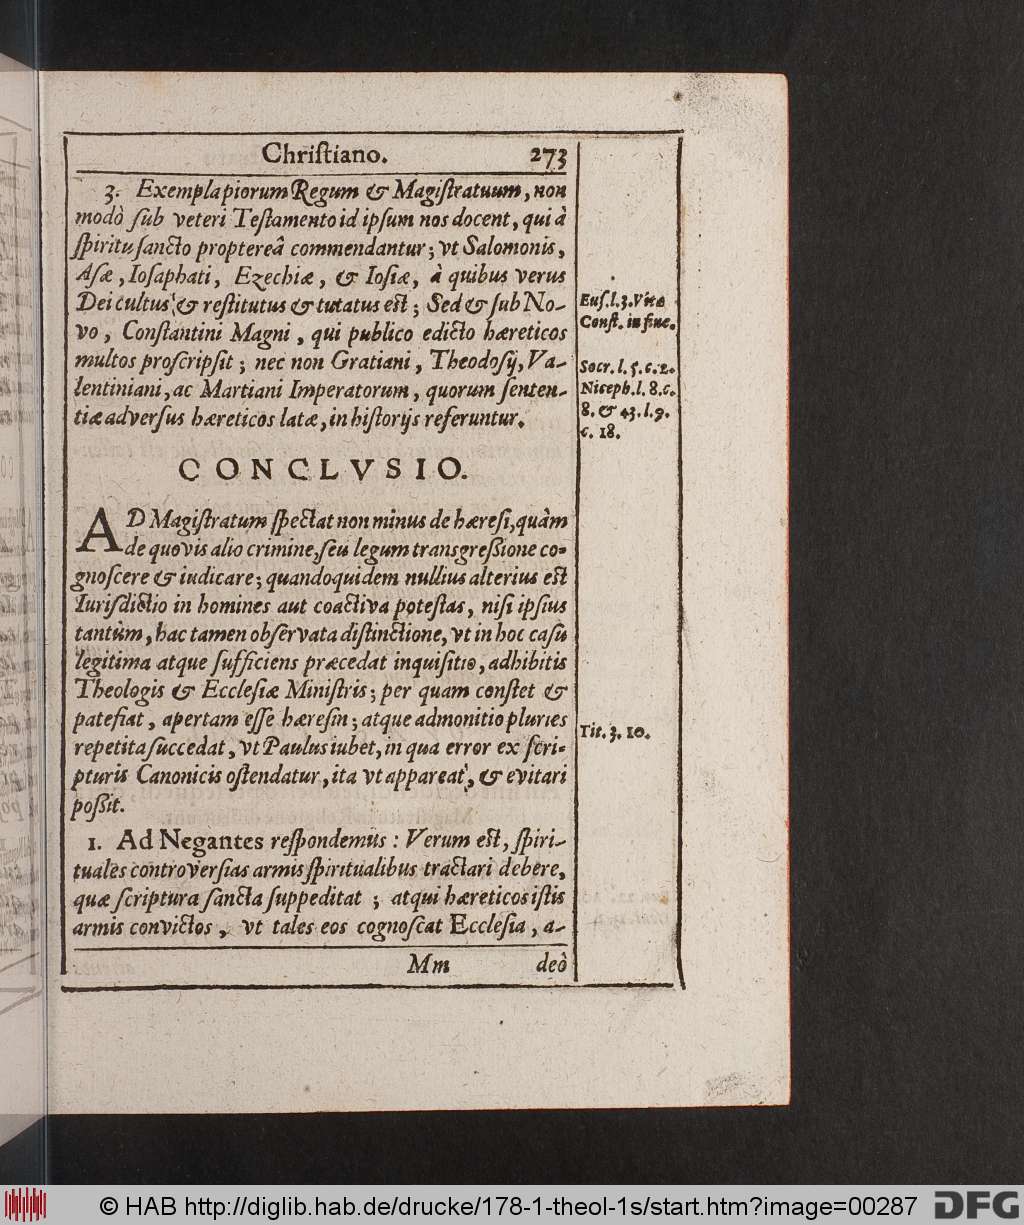 Christiano. 273
3. Exempla piorum Regum & Magistratuum, non
modò sub veteri Testamento id ipsum nos docent, qui à
spiritu sancto proptereâ commendantur; vt Salomonis,
Asæ, Iosaphati, Ezechiæ, & Iosiæ, à quibus verus
Dei cultus & restitutus & tutatus est; Sed & sub No-
vo, Constantini Magni, qui publico edicto hæreticos
multos proscripsit; nec non Gratiani, Theodosij, Va-
lentiniani, ac Martiani Imperatorum, quorum senten-
tiæ adversus hæreticos latæ, in historijs referuntur.
Eus. l. 3. Vita
Const. in fine.
Socr. l. 5. c. 2.
Niceph. l. 8. c.
8. & 43. l. 9.
c. 18.
CONCLVSIO.
AD Magistratum spectat non minus de hæresi, quàm
de quovis alio crimine, seu legum transgressione co-
gnoscere & iudicare; quandoquidem nullius alterius est
Iurisdictio in homines aut coactiva potestas, nisi ipsius
tantùm, hac tamen observata distinctione, vt in hoc casu
legitima atque sufficiens præcedat inquisitio, adhibitis
Theologis & Ecclesiæ Ministris; per quam constet &
patefiat, apertam esse hæresin; atque admonitio pluries
repetita succedat, vt Paulus iubet, in qua error ex scri-
pturis Canonicis ostendatur, ita vt appareat, & evitari
possit.
Tit. 3. 10.
1. Ad Negantes respondemus: Verum est, spiri-
tuales controversias armis spiritualibus tractari debere,
quæ scriptura sancta suppeditat; atqui hæreticos istis
armis convictos, vt tales eos cognoscat Ecclesia, a-
Mm deò
© HAB http://diglib.hab.de/drucke/178-1-theol-1s/start.htm?image=00287
DFG